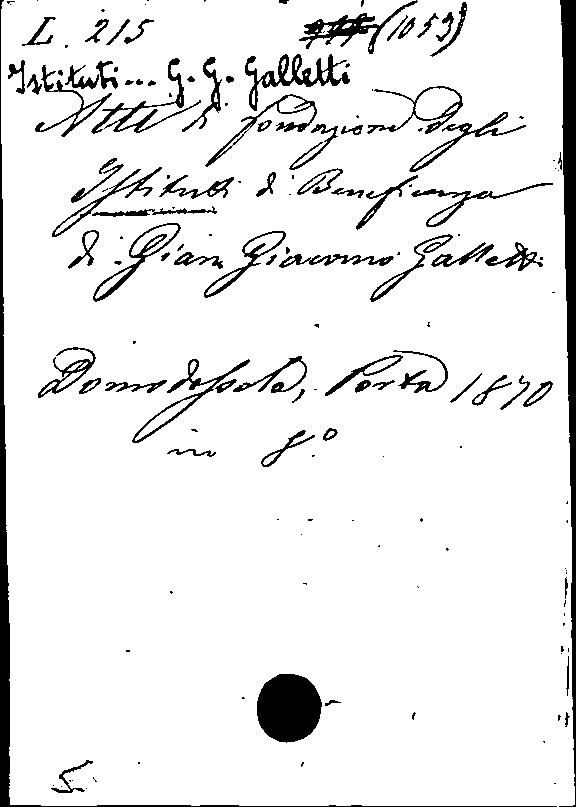 L. 215 (1053)
Istituti... G. G. Galletti
Atti di fondazione degli
Istituti di Beneficenza
di Gian Giacomo Galletti
Domodossola, Porta 1870
in 8º
5.